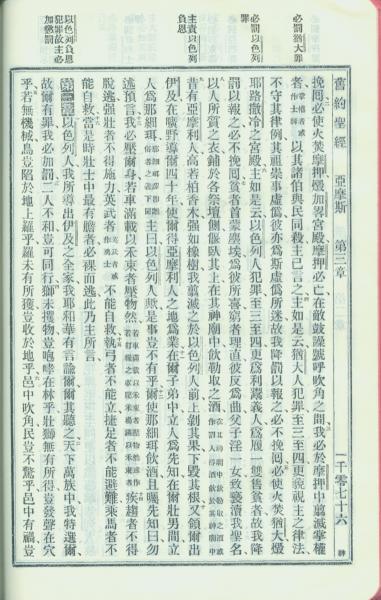 必罰猶大罪
必罰以色列罪
主責以色列負恩
以色列負恩犯罪故主必加懲罰
舊約聖經 亞摩斯 第三章 一千零七十六
挽回必使火焚摩押燬加畧宮殿摩押必亡在敵鼓譟號呼吹角之間我必於摩押中翦滅掌權
者以其諸伯與民同殺主已言之主如是云猶大人犯罪至三至四更藐視主之律法
不守其律例其祖崇事虛僞彼亦爲斯虛僞所迷故我降罰以報之必不挽回必使火焚猶大燬
耶路撒冷之宮殿主如是云以色列人犯罪至三至四更爲利鬻義人爲履一雙售貧者故我降
罰以報之必不挽回貧者首蒙塵埃爲彼所喜窮者理直彼反爲曲父子淫一女致褻瀆我聖名
以人所質之衣鋪於各祭壇側偃臥其上在其神廟中飲勒取之酒
昔有亞摩利人高若柏香木强如橡樹我翦滅之於以色列人前上剝其果下毀其根又領爾出
伊及在曠野導爾四十年使爾得亞摩利人之地爲業在爾子弟中立人爲先知在爾壯男間立
人爲那細珥主曰以色列人歟是事豈不有乎爾使那細珥飲酒且囑先知曰勿
述預言我必壓爾身若車滿載以禾束者壓物然疾趨者不得
脫逃强壯者不得施力英武者不能自救執弓者不能立捷足者不能避難乘馬者不
能自救當是時壯士中最有膽者必裸而逃此乃主所言
第三章以色列人我所導出伊及之全家我耶和華有言諭爾爾其聽之天下萬族中我特選爾
故爾有罪我必加罰二人不和豈可同行獅未攫物豈咆哮在林乎壯獅無有所得豈發聲在穴
乎若無機檻鳥豈陷於地上羅乎羅未有所獲豈收於地乎邑中吹角民豈不驚乎邑中有禍豈